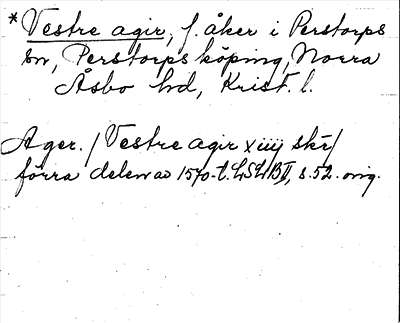 *Vestre agir, f. åker i Perstorps
sn, Perstorps köping, Norra
Åsbo hd, Krist. l.
Ager. / Vestre agir xiiij skr/
förra delen av 1570-t. LSLB II, s. 52. orig.